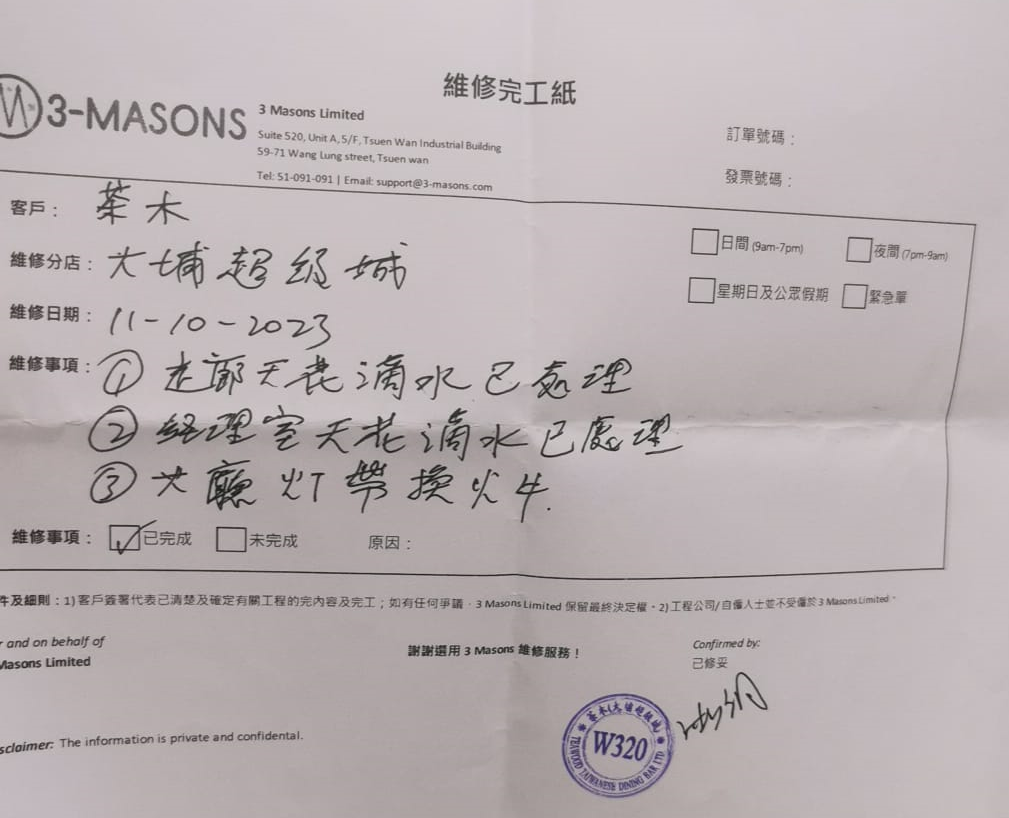 維修完工紙
3-MASONS
3 Masons Limited
Suite 520, Unit A, 5/F, Tsuen Wan Industrial Building
59-71 Wang Lung street, Tsuen wan
Tel: 51-091-091 | Email: support@3-masons.com
訂單號碼：
發票號碼：
客戶： 茶木
維修分店： 大埔超級城
維修日期： 11-10-2023
日間 (9am-7pm) 夜間 (7pm-9am)
星期日及公眾假期 緊急單
維修事項： ① 走廊天花滴水已處理
② 经理室天花滴水已處理
③ 大廳灯帶換火牛.
維修事項： 已完成 未完成 原因：
件及細則：1) 客戶簽署代表已清楚及確定有關工程的完內容及完工；如有任何爭議，3 Masons Limited 保留最終決定權。2) 工程公司/自僱人士並不受僱於 3 Masons Limited。
r and on behalf of
Masons Limited
謝謝選用 3 Masons 維修服務！
Confirmed by:
已修妥
茶木(大埔超級城)
W320
TEAWOOD TAIWANESE DINING BAR LTD
sclaimer: The information is private and confidental.